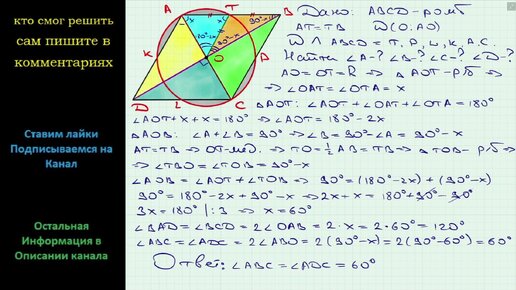 кто смог решить
сам пишите в
комментариях
Ставим лайки
Подписываемся на
Канал
Остальная
Информация в
Описании канала
A
T
B
x
x
90°-x
20°-2x
90°-x
K
O
P
D
L
C
Дано: ABCD - ромб
AT=TB W(O;AO)
W ∧ ABCD = T, P, L, K, A, C.
Найти ∠A-? ∠B-? ∠C-? ∠D-?
AO=OT=R ⇒ △AOT-р/б ⇒
⇒ ∠OAT=∠OTA=x
△AOT: ∠AOT+∠OAT+∠OTA=180°
∠AOT+x+x=180° ⇒ ∠AOT=180°-2x
△AOB: ∠A+∠B=90° ⇒ ∠B=90°-∠A=90°-x
AT=TB ⇒ OT-мед. ⇒ TO=½AB=TB ⇒ △TOB-р/б ⇒
⇒ ∠TBO=∠TOB=90°-x
∠AOB=∠AOT+∠TOB ⇒ 90°=(180°-2x)+(90°-x)
90°=180°-2x+90°-x ⇒ 2x+x=180°+90°-90°
3x=180° |:3 ⇒ x=60°
∠BAD=∠BCD=2∠OAB=2·x=2·60°=120°
∠ABC=∠ADC=2∠ABO=2(90°-x)=2(90°-60°)=60°
Ответ: ∠ABC=∠ADC=60°